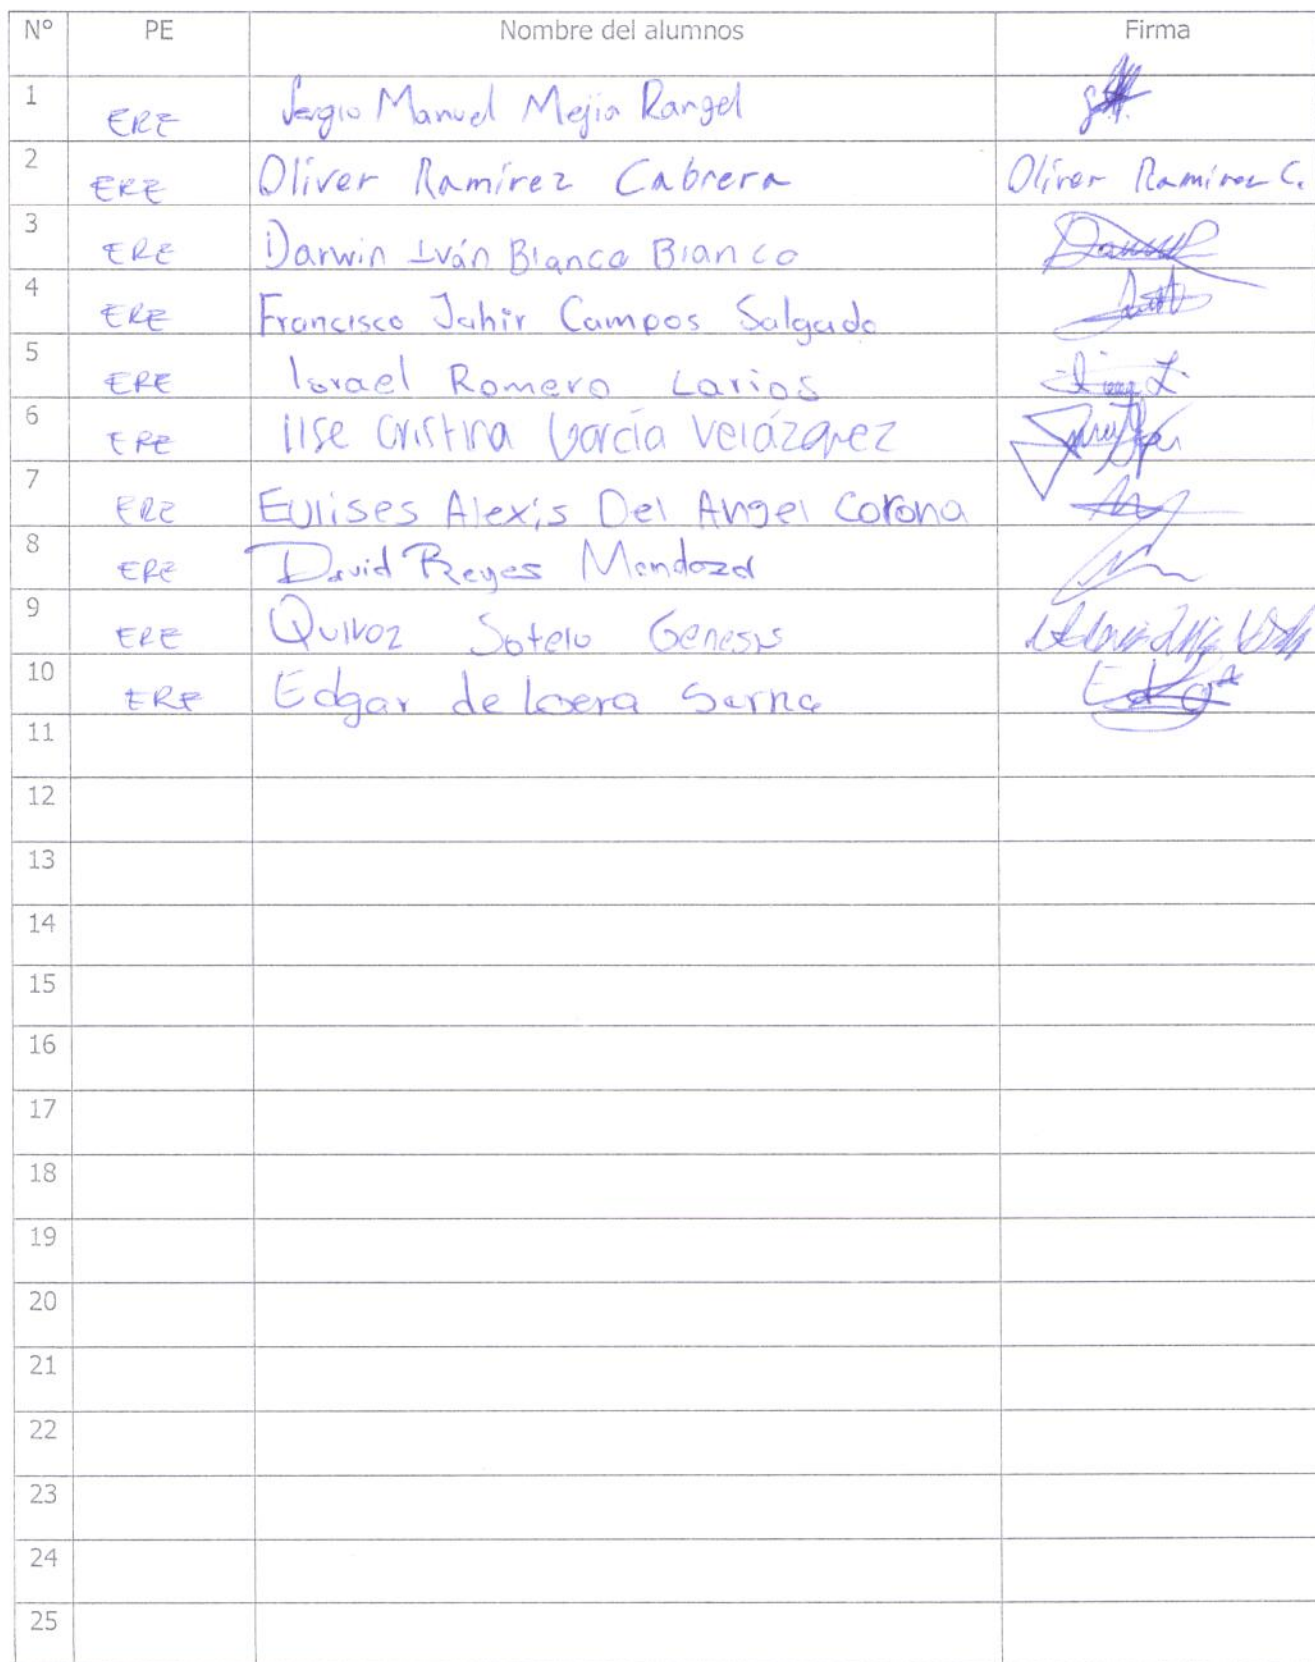 Nº PE Nombre del alumnos Firma
1 ERE Sergio Manuel Mejia Rangel
2 ERE Oliver Ramírez Cabrera Oliver Ramirez C.
3 ERE Darwin Iván Blanco Blanco
4 ERE Francisco Jahir Campos Salgado
5 ERE Israel Romero Larios
6 ERE Ilse Cristina García Velázquez
7 ERE Eulises Alexis Del Angel Corona
8 ERE David Reyes Mendoza
9 ERE Quiroz Sotelo Genesis
10 ERE Edgar de loera Serna
11
12
13
14
15
16
17
18
19
20
21
22
23
24
25